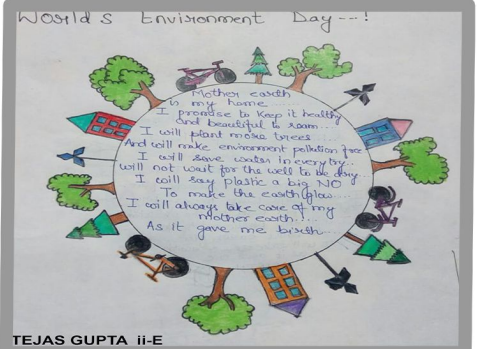 World's Environment Day---!
Mother earth
is my home........
I promise to keep it healthy
and beautiful to roam...
I will plant more trees
And will make environment pollution free
I will save water in every try..
will not wait for the well to be dry.
I will say plastic a big NO
To make the earth glow...
I will always take care of my
mother earth.....
As it gave me birth....
TEJAS GUPTA ii-E